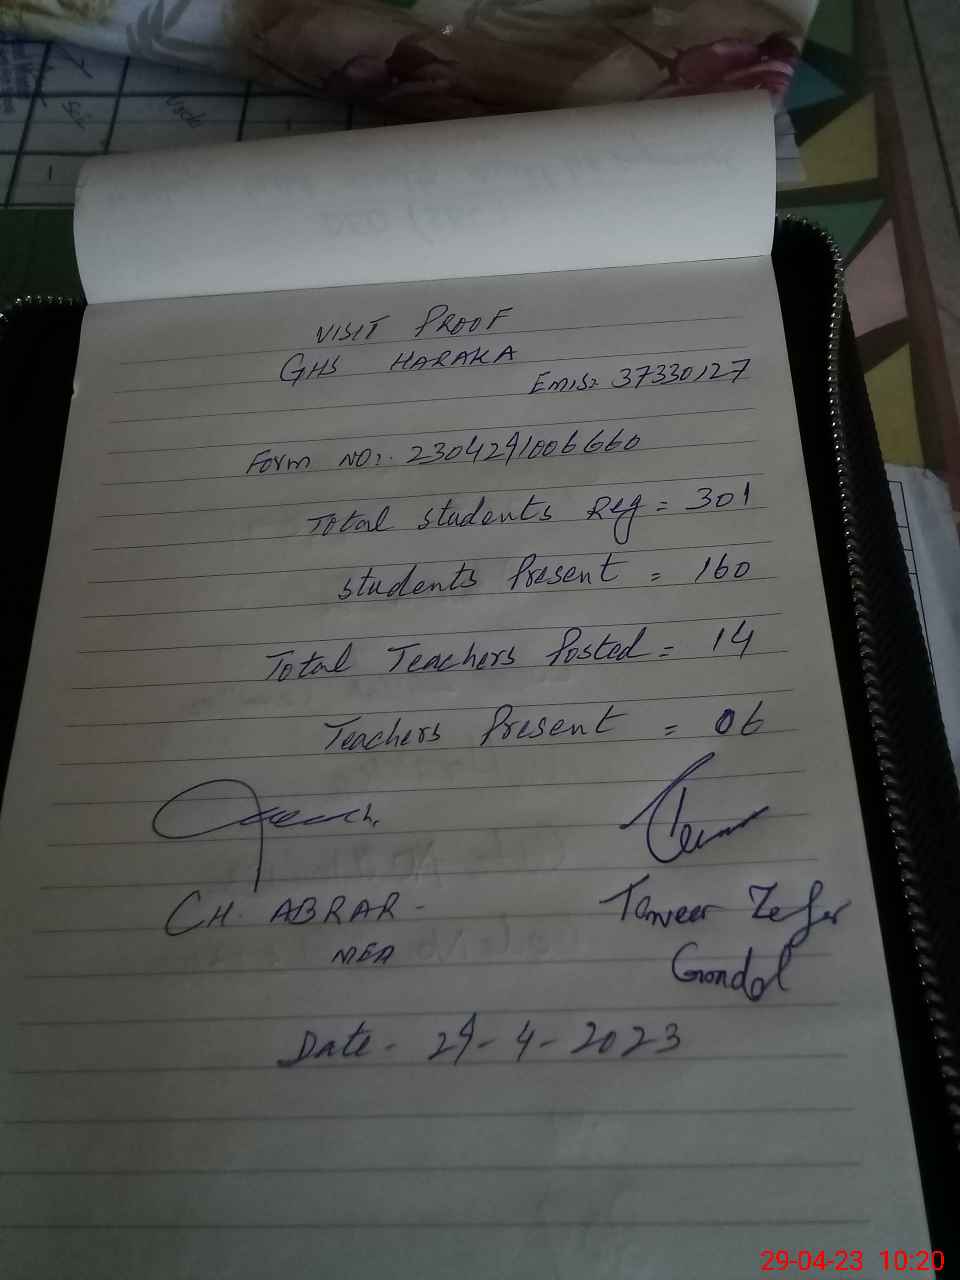 VISIT PROOF
GHS HARAKA
EMIS: 37330127
Form NO:. 2304291006660
Total students Reg = 301
students Present = 160
Total Teachers Posted = 14
Teachers Present = 06
CH. ABRAR.
MEA
Tanveer Zafar
Gondal
Date - 29-4-2023
29-04-23 10:20